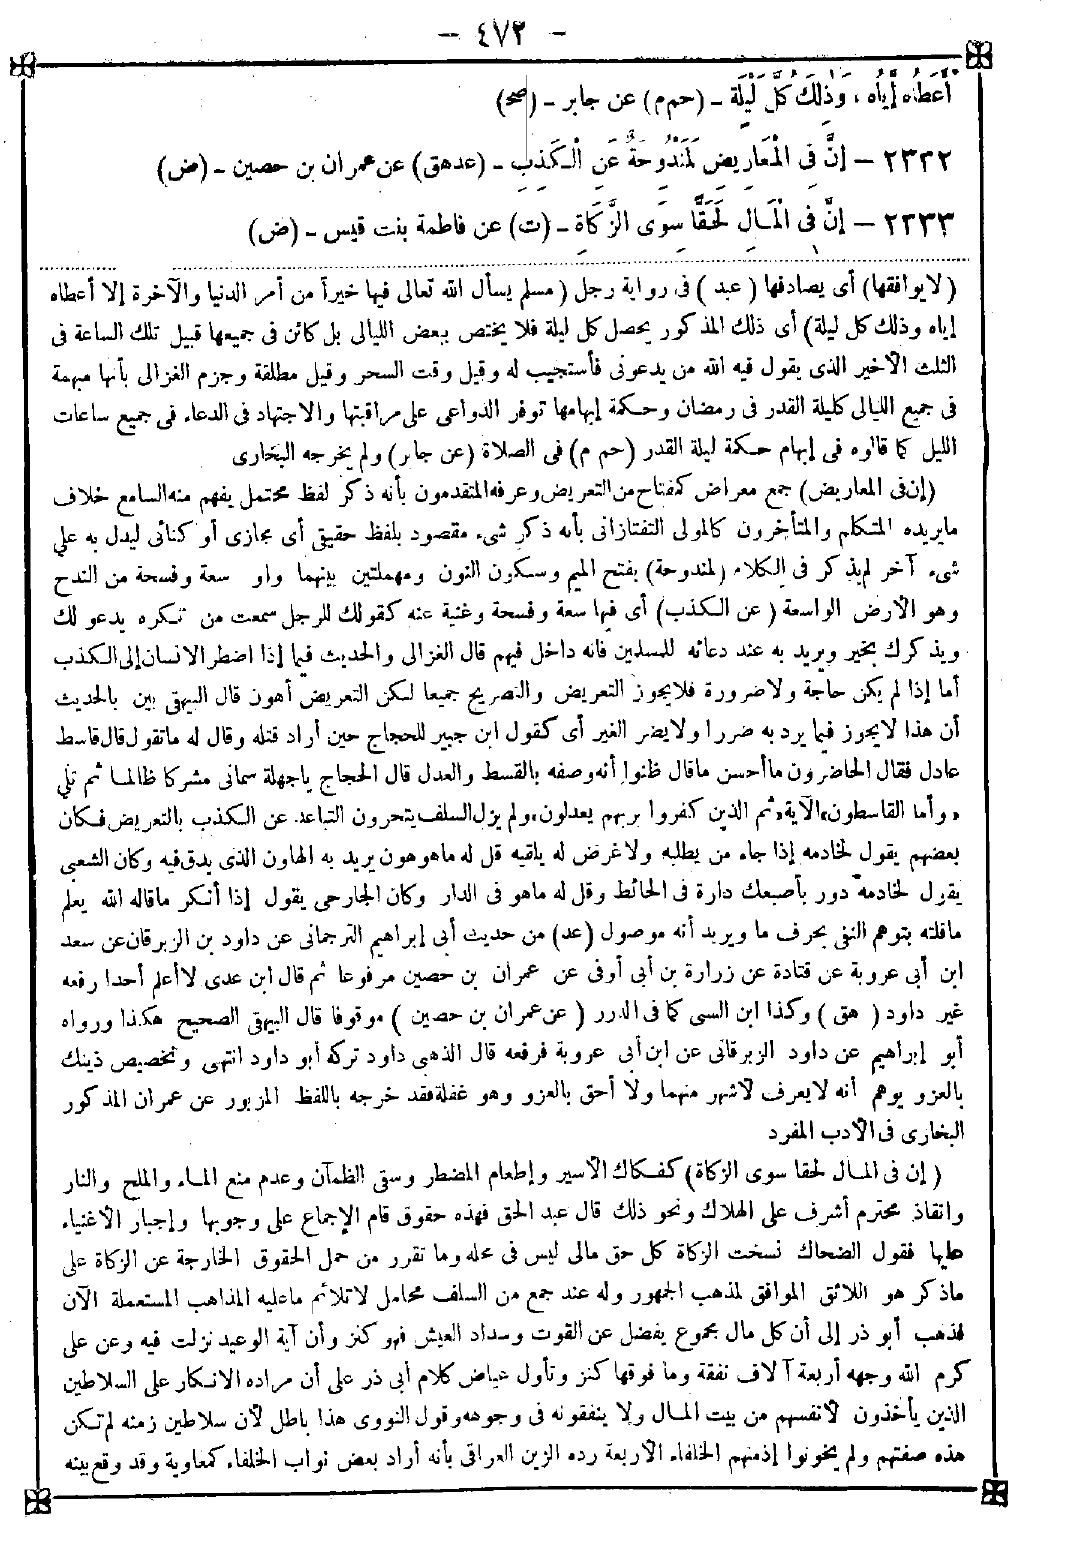 - ٤٧٢ -
أَعْطَاهُ إِيَّاهُ، وَذٰلِكَ كُلَّ لَيْلَةٍ - (حم م) عن جابر - (صح)
٢٣٣٢ - إِنَّ فِى الْمَعَارِيضِ لَمَنْدُوحَةٌ عَنِ الْكَذِبِ - (عد هق) عن عمران بن حصين - (ض)
٢٣٣٣ - إِنَّ فِى الْمَالِ لَحَقًّا سِوَى الزَّكَاةِ - (ت) عن فاطمة بنت قيس - (ض)
(لا يوافقها) أى يصادفها (عبد) فى رواية رجل (مسلم يسأل الله تعالى فيها خيراً من أمر الدنيا والآخرة إلا أعطاه
إياه وذلك كل ليلة) أى ذلك المذكور يحصل كل ليلة فلا يختص ببعض الليالى بل كائن فى جميعها قبيل تلك الساعة فى
الثلث الأخير الذى يقول فيه الله من يدعونى فأستجيب له وقيل وقت السحر وقيل مطلقة وجزم الغزالى بأنها مبهمة
فى جميع الليالى كليلة القدر فى رمضان وحكمة إبهامها توفر الدواعى على مراقبتها والاجتهاد فى الدعاء فى جميع ساعات
الليل كما قالوه فى إبهام حكمة ليلة القدر (حم م) فى الصلاة (عن جابر) ولم يخرجه البخارى
(إن فى المعاريض) جمع معراض كمفتاح من التعريض وعرفه المتقدمون بأنه ذكر لفظ محتمل يفهم منه السامع خلاف
ما يريده المتكلم والمتأخرون كالمولى التفتازانى بأنه ذكر شىء مقصود بلفظ حقيقى أى مجازى أو كنائى ليدل به على
شىء آخر لم يذكر فى الكلام (لمندوحة) بفتح الميم وسكون النون ومهملتين بينهما واو سعة وفسحة من الندح
وهو الأرض الواسعة (عن الكذب) أى فيها سعة وفسحة وغنية عنه كقولك للرجل سمعت من تكره يدعو لك
ويذكرك بخير ويريد به عند دعائه للمسلمين فانه داخل فيهم قال الغزالى والحديث فيما إذا اضطر الانسان إلى الكذب
أما إذا لم يكن حاجة ولا ضرورة فلا يجوز التعريض والتصريح جميعا لكن التعريض أهون قال البيهقى بين بالحديث
أن هذا لا يجوز فيما يرد به ضررا ولا يضر الغير أى كقول ابن جبير للحجاج حين أراد قتله وقال له ما تقول قال قاسط
عادل فقال الحاضرون ما أحسن ما قال ظنوا أنه وصفه بالقسط والعدل قال الحجاج يا جهلة سمانى مشركا ظالما ثم تلى
«وأما القاسطون» الآية «ثم الذين كفروا بربهم يعدلون» ولم يزل السلف يتحرون التباعد عن الكذب بالتعريض فكان
بعضهم يقول لخادمه إذا جاء من يطلبه ولا غرض له يلقيه قل له ما هو هون يريد به الهاون الذى يدق فيه وكان الشعبى
يقول لخادمه دور بأصبعك دارة فى الحائط وقل له ما هو فى الدار وكان الجارحى يقول إذا أنكر ما قاله الله يعلم
ما قلته بتوهم النفى بحرف ما ويريد أنه موصول (عد) من حديث أبى إبراهيم الترجمانى عن داود بن الزبرقان عن سعد
ابن أبى عروبة عن قتادة عن زرارة بن أبى أوفى عن عمران بن حصين مرفوعا ثم قال ابن عدى لا أعلم أحدا رفعه
غير داود (هق) وكذا ابن السى كما فى الدرر (عن عمران بن حصين) موقوفا قال البيهقى الصحيح هكذا ورواه
أبو إبراهيم عن داود الزبرقانى عن ابن أبى عروبة فرفعه قال الذهبى داود تركه أبو داود انتهى وتخصيص ذينك
بالعزو يوهم أنه لا يعرف لأشهر منهما ولا أحق بالعزو وهو غفلة فقد خرجه باللفظ المزبور عن عمران المذكور
البخارى فى الأدب المفرد
(إن فى المال لحقا سوى الزكاة) كفكاك الأسير وإطعام المضطر وسقى الظمآن وعدم منع الماء والملح والنار
وانقاذ محترم أشرف على الهلاك ونحو ذلك قال عبد الحق فهذه حقوق قام الإجماع على وجوبها وإجبار الأغنياء
عليها فقول الضحاك نسخت الزكاة كل حق مالى ليس فى محله وما تقرر من حمل الحقوق الخارجة عن الزكاة على
ما ذكر هو اللائق الموافق لمذهب الجمهور وله عند جمع من السلف محامل لا تلائم ما عليه المذاهب المستعملة الآن
فذهب أبو ذر إلى أن كل مال مجموع يفضل عن القوت وسداد العيش فهو كنز وأن آية الوعيد نزلت فيه وعن على
كرم الله وجهه أربعة آلاف نفقة وما فوقها كنز وتأول عياض كلام أبى ذر على أن مراده الانكار على السلاطين
الذين يأخذون لأنفسهم من بيت المال ولا ينفقونه فى وجوهه وقول النووى هذا باطل لأن سلاطين زمنه لم تكن
هذه صفتهم ولم يخونوا إذ منهم الخلفاء الأربعة رده الزين العراقى بأنه أراد بعض نواب الخلفاء كمعاوية وقد وقع بينه